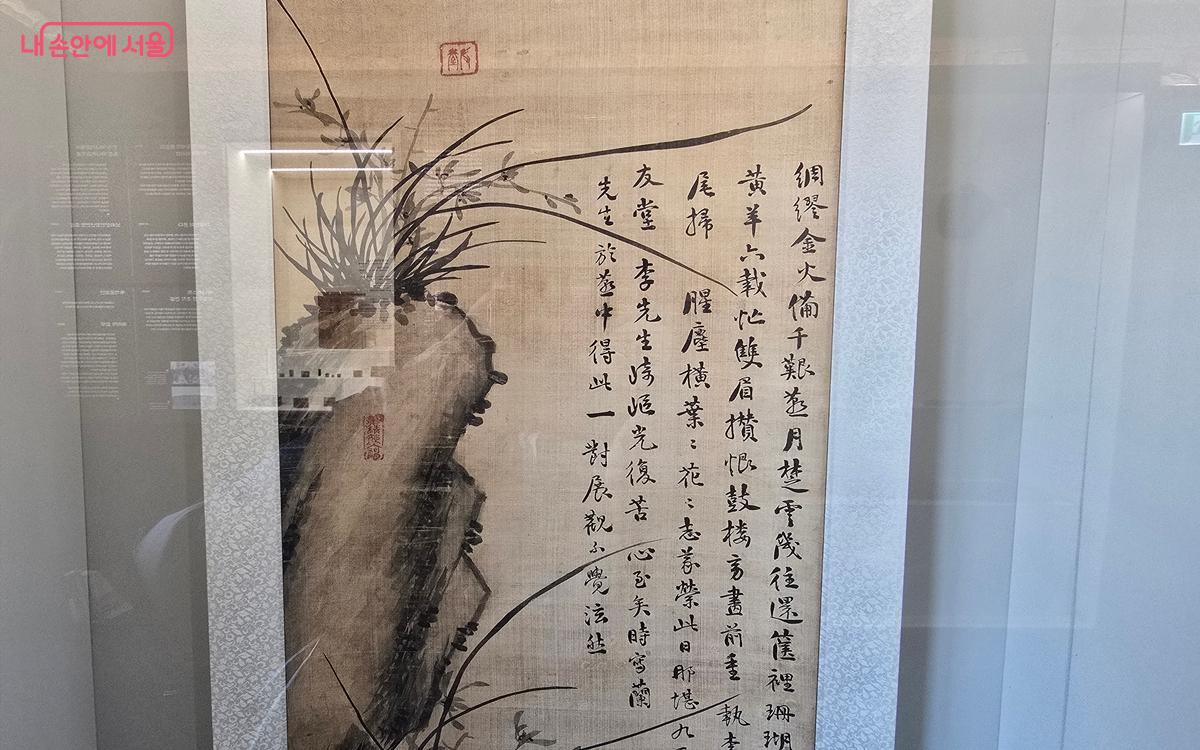 내 손안에 서울
綢繆金火備千艱燕月楚雲幾往還篋裡珊瑚
黃羊六載忙雙眉攢恨鼓樓旁畫前重執李
尾掃 腥塵橫葉〻花〻志義榮此日那堪九
友堂 李先生崎嶇光復苦心至矣時寫蘭
先生於燕中得此一對展觀不覺泫然